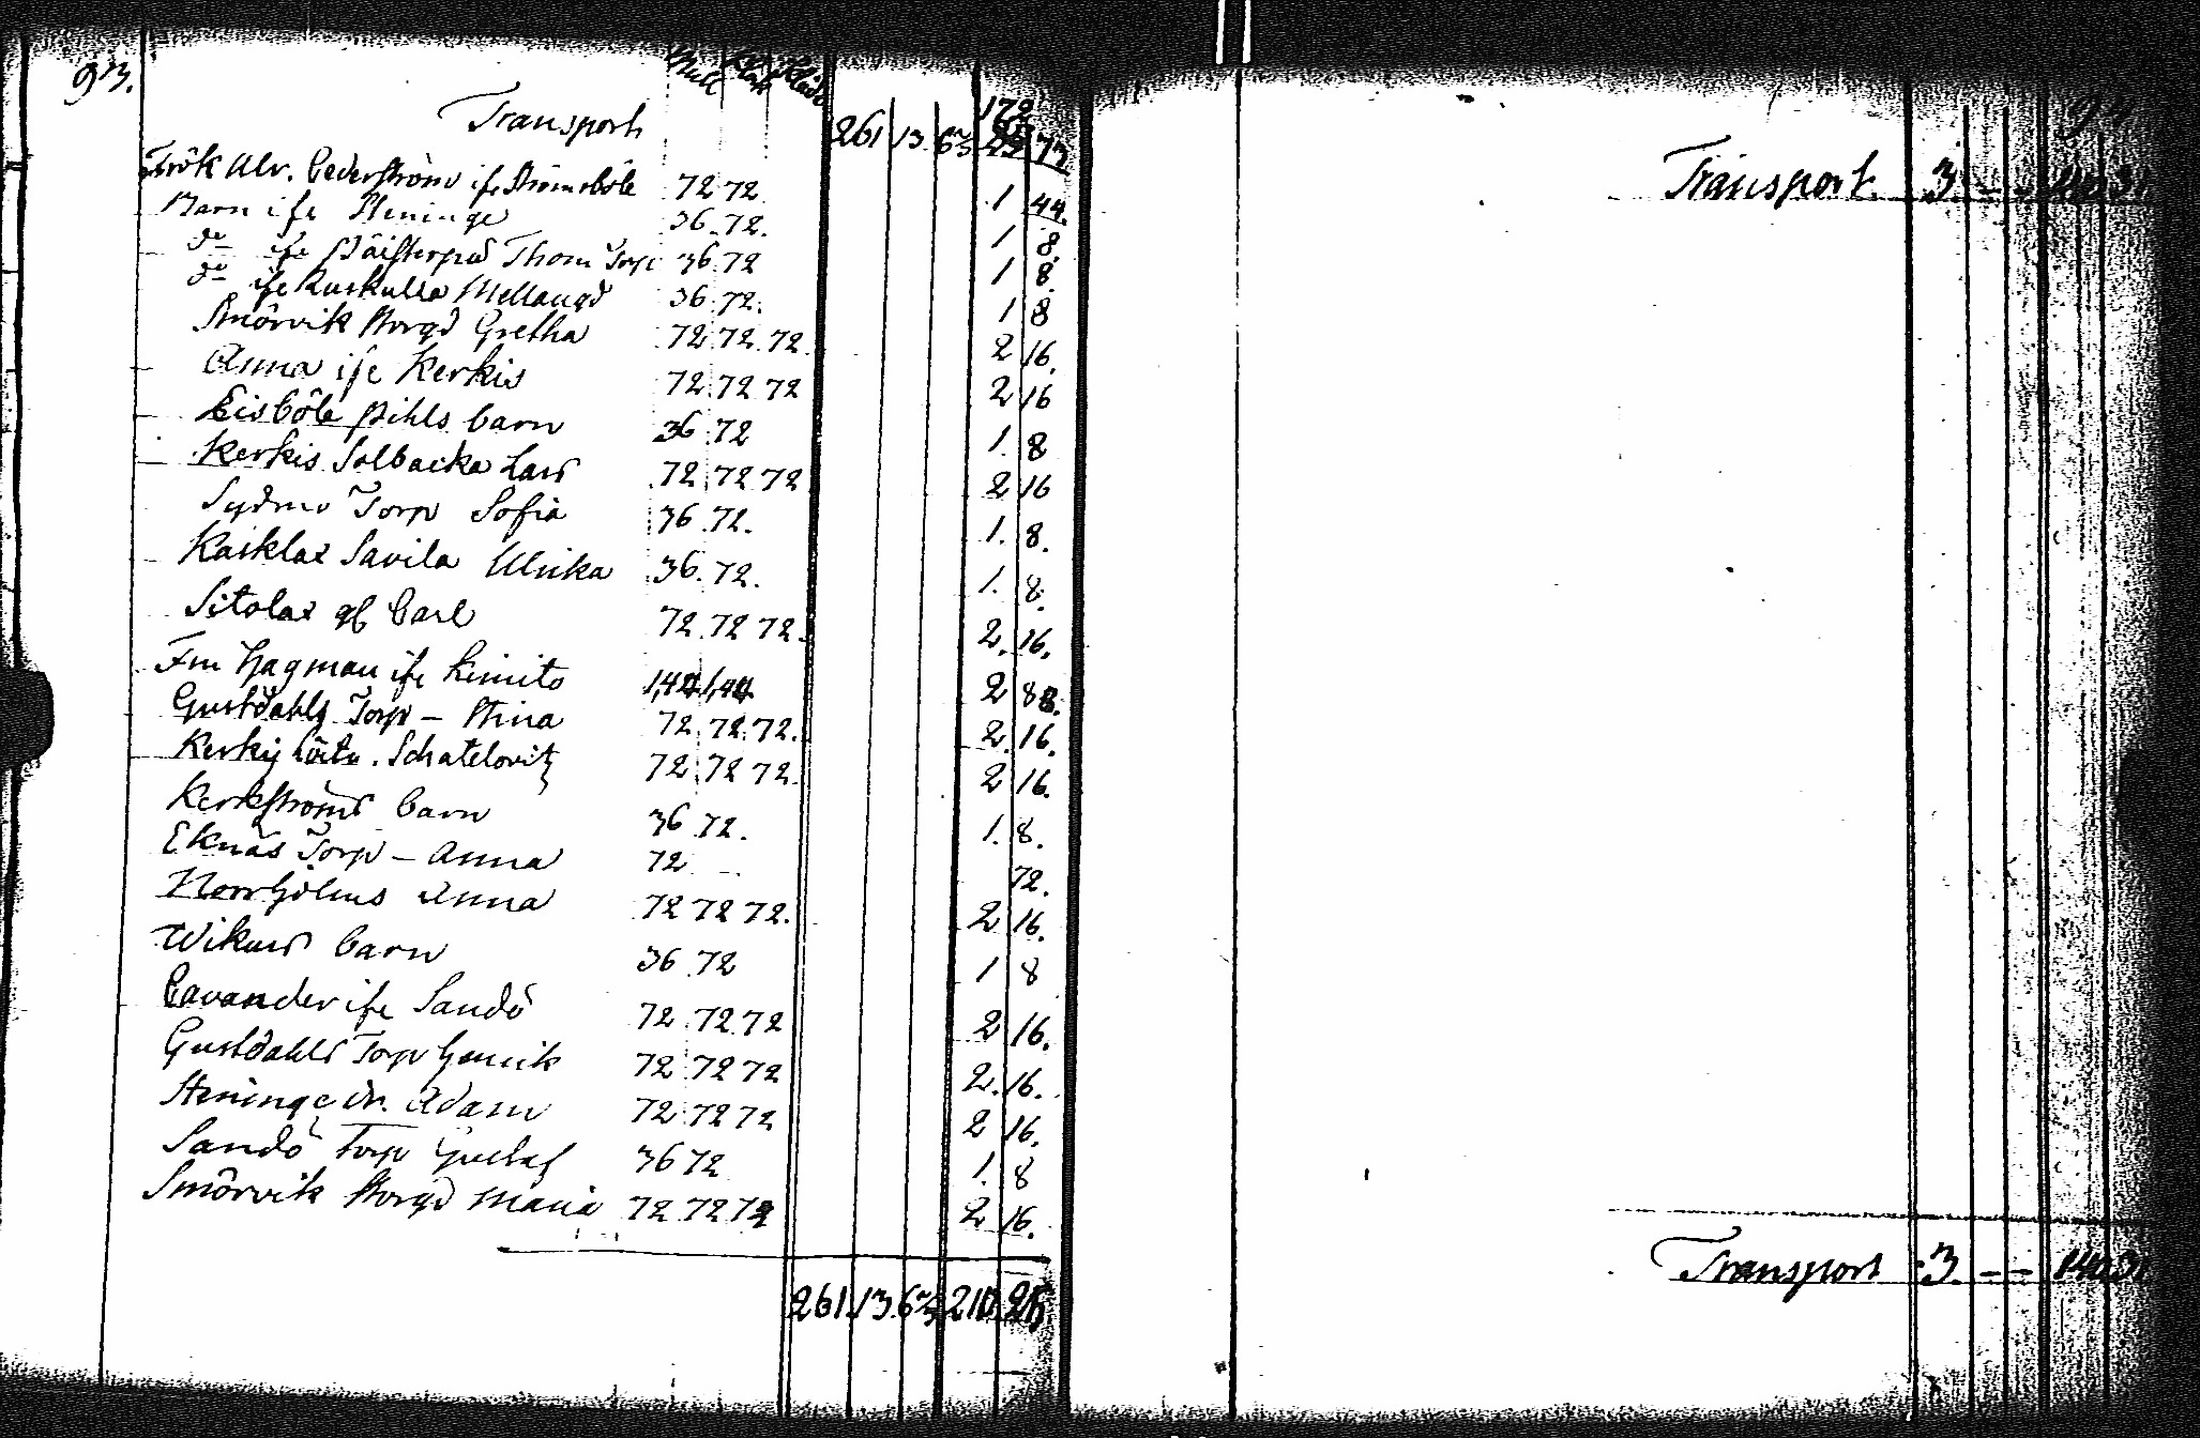 93.
Transport 261 13 6 2/3 172 73
Frök Ulr. Cederström ifr Strömsböle 72 72 1 44.
Barn ifr Steninge 36. 72. 1 8.
do ifr Thom Torp 36. 72 1 8.
do ifr Ruskulla Mellangd 36. 72. 1 8
Smörvik Storgd Gretha 72 72. 72. 2 16.
Anna ifr Kerkis 72. 72 72 2 16
Eisböle Pihls barn 36 72 1. 8
Kerkis Solbacka Lars 72. 72 72 2 16
Sydmo Torp Sofia 36. 72. 1. 8.
Kasklax Savila Ulrika 36. 72. 1. 8.
Sitolax gl Carl 72. 72 72. 2. 16.
Fru Hagman ifr Kimito 1,44 1,44 2 88.
Gustdahls Torp – Stina 72. 72. 72. 2. 16.
Kerkis Schatelovitz 72 72 72. 2 16.
Kerkströms barn 36 72. 1. 8.
Eknäs Torp – Anna 72 72.
Norrholms Anna 72 72 72. 2 16.
Wikars barn 36. 72 1 8
Cavander ifr Sandö 72. 72. 72 2 16.
Gustdahls Torp Henrik 72 72 72 2. 16.
Steninge dr. Adam 72. 72 72 2 16.
Sandö Torp Gustaf 36 72 1. 8
Smörvik Storgd Maria 72 72 72 2 16.
261. 13. 6 2/3 210. 25
Transport 3. – –
Transport 3. – –